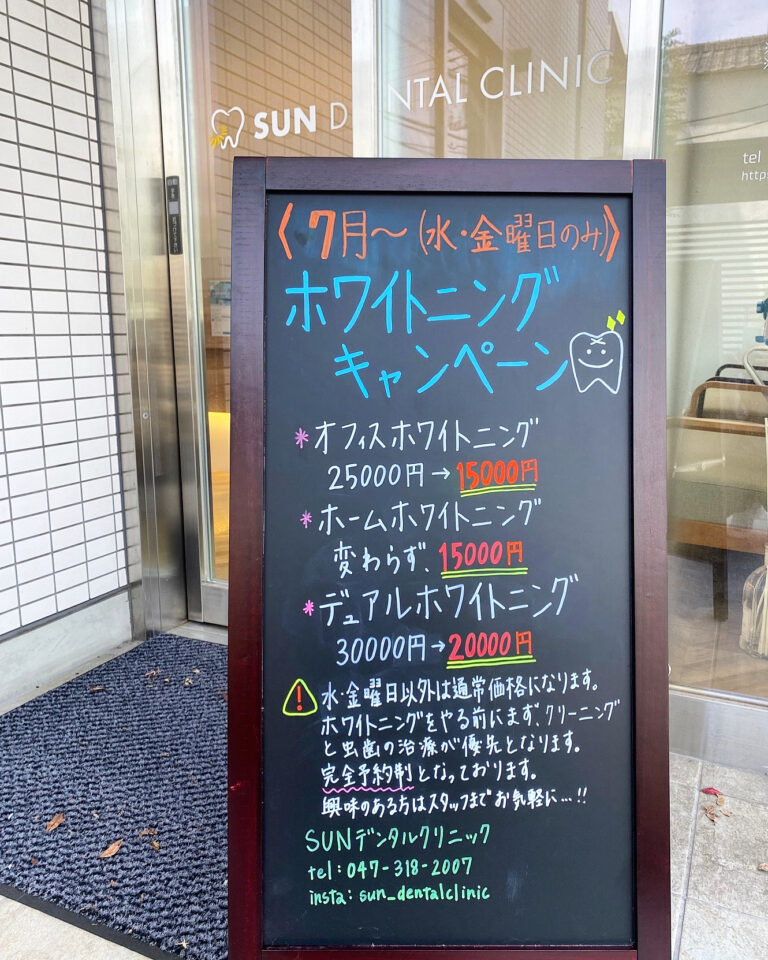 SUN D NTAL CLINIC
tel
http
〈7月〜(水・金曜日のみ)〉
ホワイトニング
キャンペーン
*オフィスホワイトニング
25000円→15000円
*ホームホワイトニング
変わらず、15000円
*デュアルホワイトニング
30000円→20000円
水・金曜日以外は通常価格になります。
ホワイトニングをやる前にまず、クリーニング
と虫歯の治療が優先となります。
完全予約制となっております。
興味のある方はスタッフまでお気軽に…!!
SUNデンタルクリニック
tel:047-318-2007
insta:sun_dentalclinic